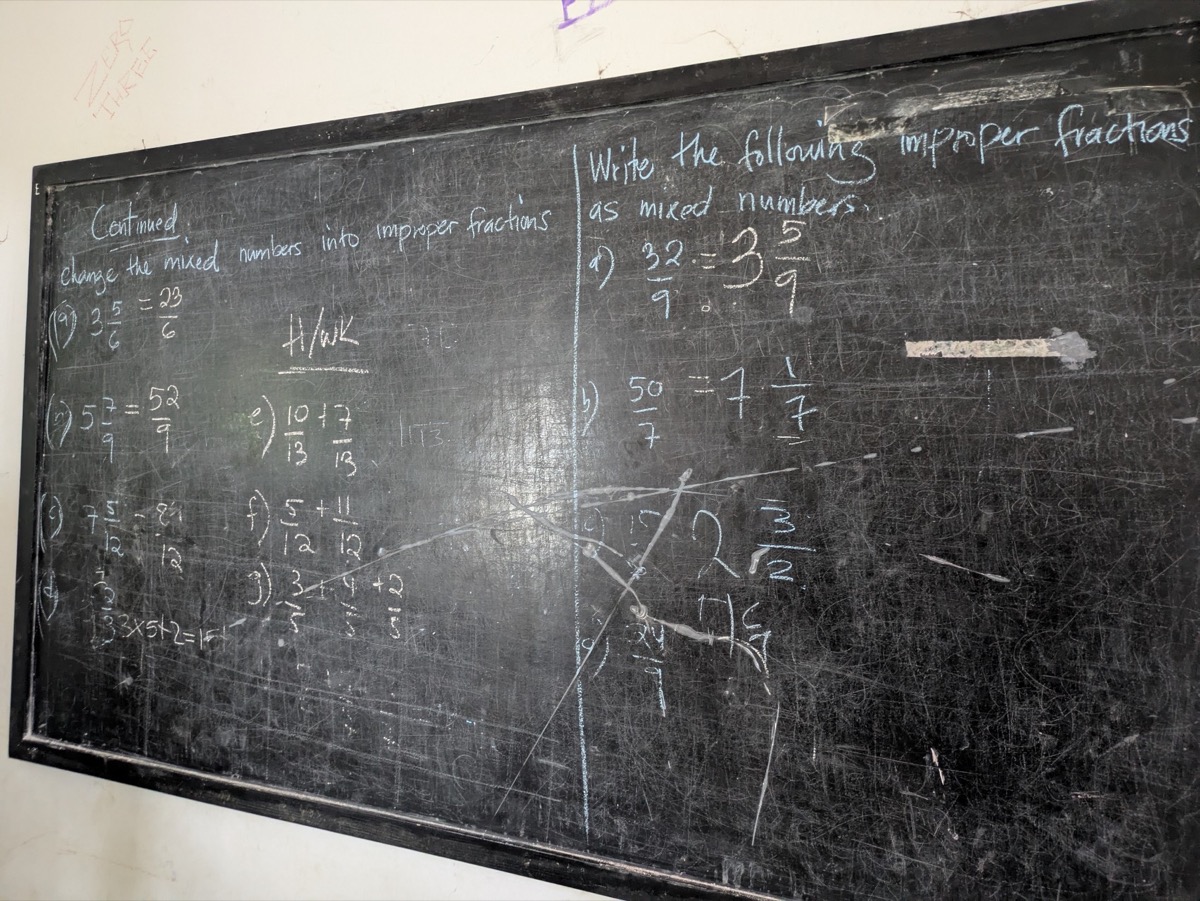 ZERO
THREE
E
Continued
change the mixed numbers into improper fractions
(a) 3 5/6 = 23/6
H/WK
(b) 5 7/9 = 52/9
e) 10/13 + 7/13
(c) 7 5/12 = 89/12
f) 5/12 + 11/12
3x5+2=
g) 3/5 + 4/5 + 2/5
Write the following improper fractions
as mixed numbers.
a) 32/9 = 3 5/9
b) 50/7 = 7 1/7
2 3/2